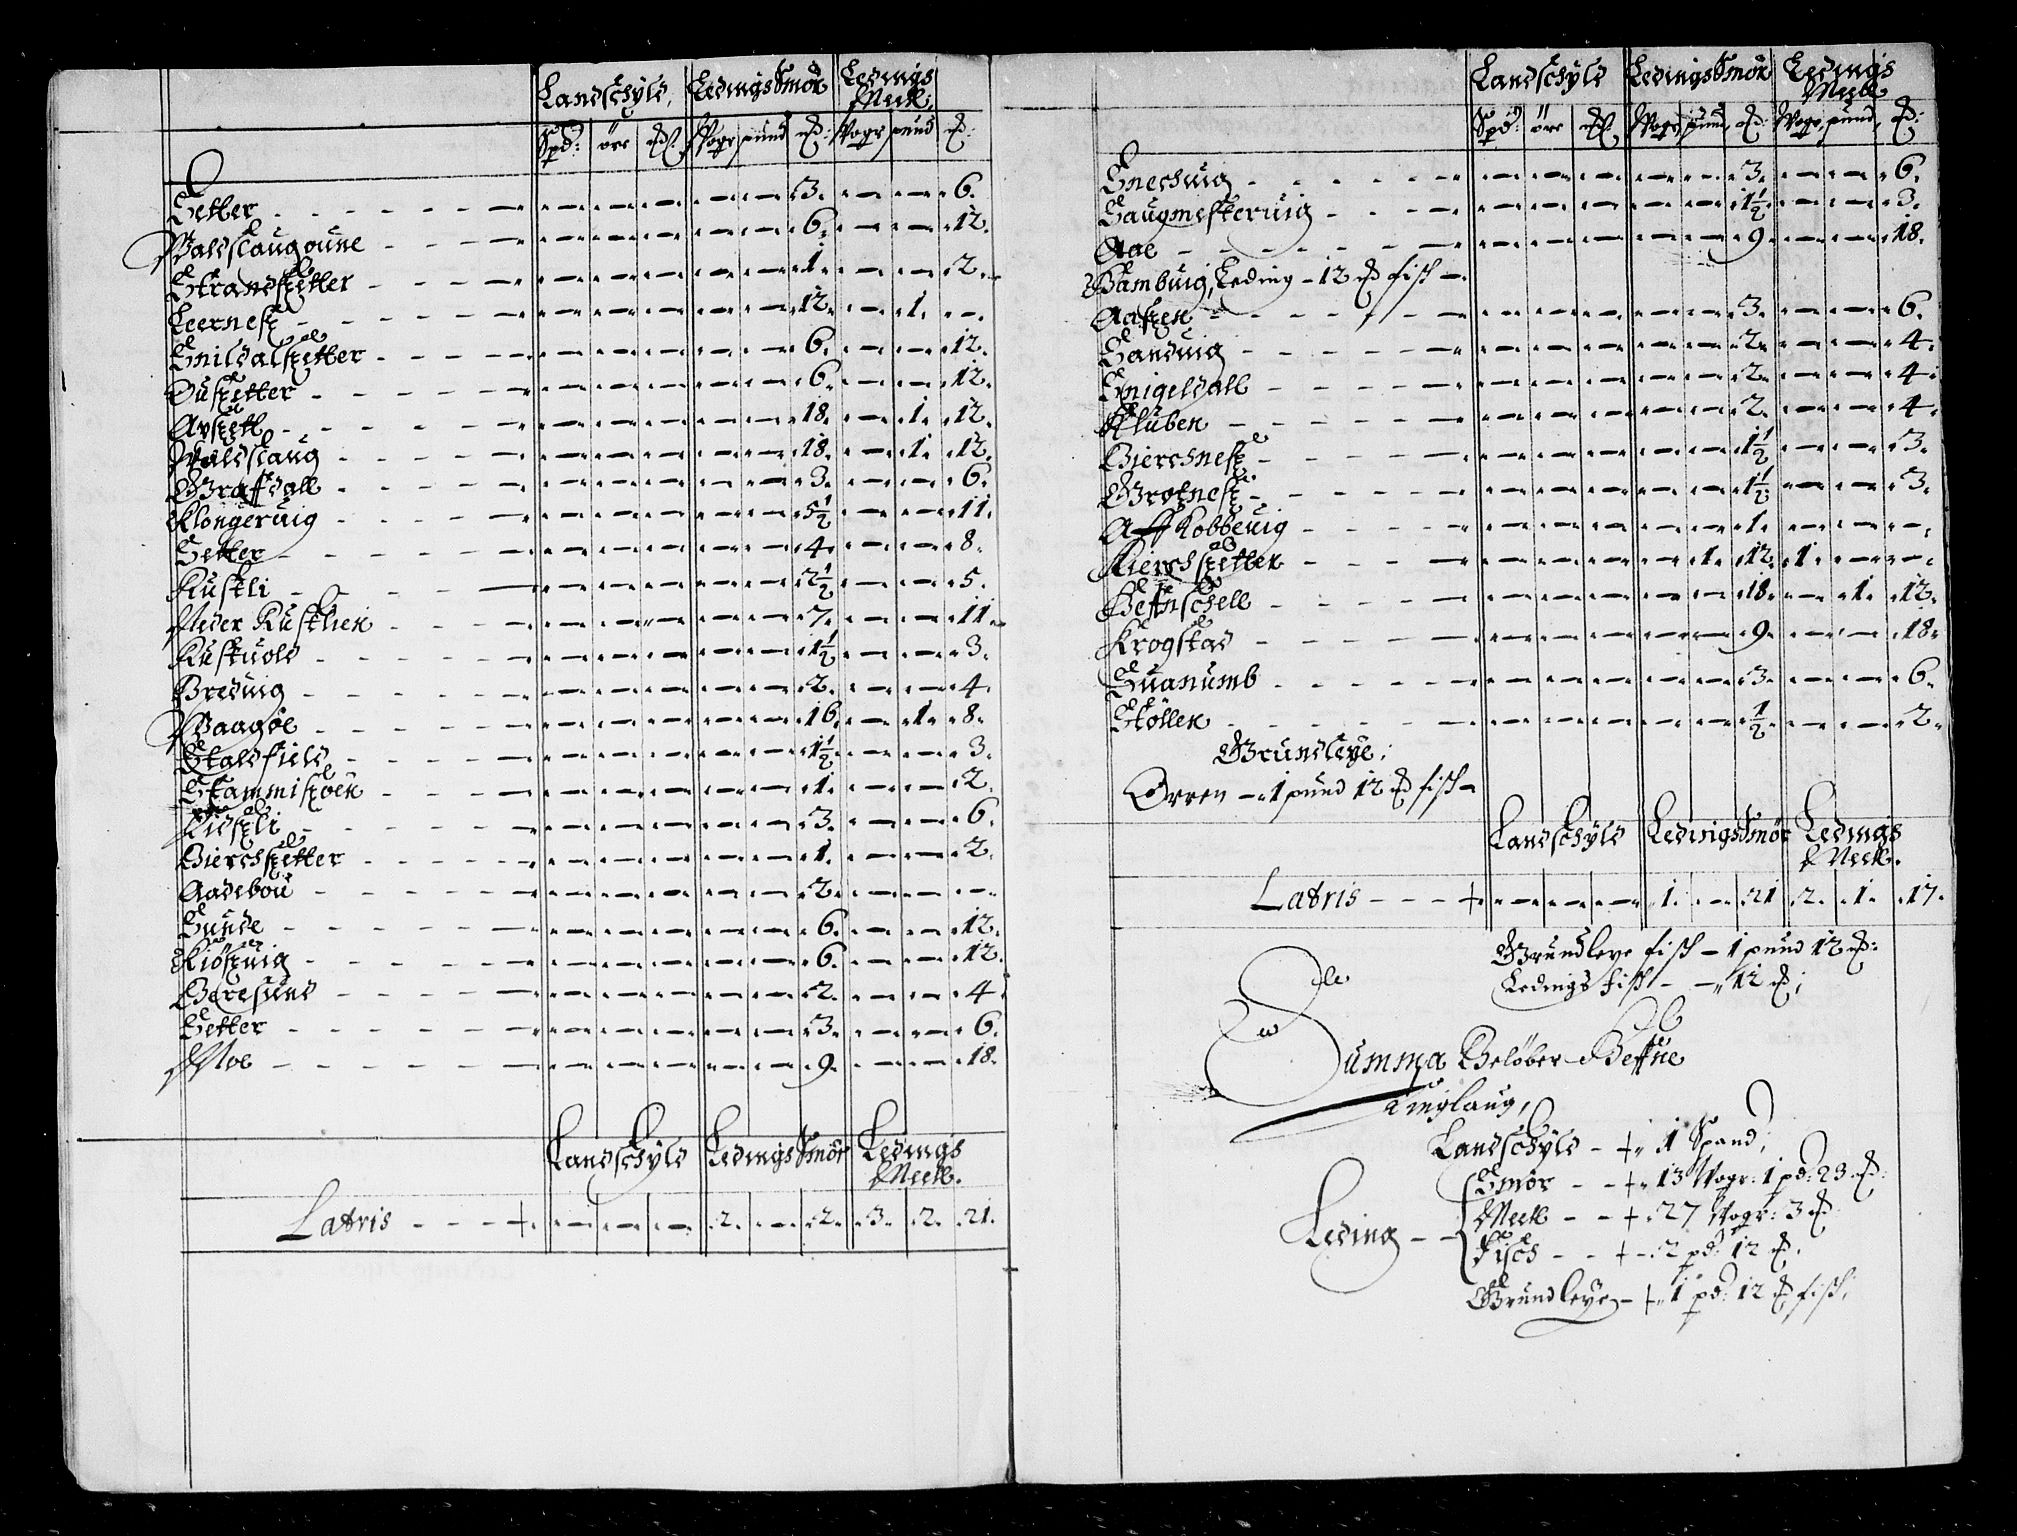 Landschyld, LedingsSmör Ledings Meell.
Spd: öre ... Voger pund ... Voger pund ...
Setter - - - 3. - - 6.
Waldslaugoune - - - 6. - - 12.
Strandsetter - - - 1. - - 2.
Leernes - - - 12. - 1. -
Snildalsetter - - - 6. - - 12.
Dusetter - - - 6. - - 12.
Aysett - - - 18. - 1. 12.
Waldslaug - - - 18. - 1. 12.
Grafdall - - - 3. - - 6.
Klongeruig - - - 5½ - - 11.
Setter - - - 4. - - 8.
Rustli - - - 2½ - - 5.
Neder Rustlien - - - 7. - - 11.
Rustuold - - - 1½ - - 3.
Breduig - - - 2. - - 4.
Waagöe - - - 16. - 1. 8.
Staldfield - - - 1½ - - 3.
Stammisöen - - - 1. - - 2.
Lidsli - - - 3. - - 6.
Bierchsetter - - - 1. - - 2.
Aadebou - - - 2. - - -
Sunde - - - 6. - - 12.
Kiösuig - - - 6. - - 12.
Beresund - - - 2. - - 4.
Setter - - - 3. - - 6.
Moe - - - 9. - - 18.
Landschyld LedingsSmör Ledings Meell.
Latris - - - + - - - 2. - 2. 3. 2. 21.
Landschyld LedingsSmör Ledings Meell
Spd: öre ... Voger, pund, ... Voger, pund, ...
Snechuig - - - 3. - - 6.
Haugmesteruig - - - 1½ - - 3.
Aae - - - 9. - - 18.
Bambuig, Leding - 12 ... fisch -
Aasen - - - 3. - - 6.
Sanduig - - - 2. - - 4.
Snigeldall - - - 2. - - 4.
Kluben - - - 2. - - 4.
Bierchnes - - - 1½ - - 3.
Grotnes - - - 1½ - - 3.
Aff Kobbeuig - - - 1. - - -
Kierchsetter - - 1. 12. 1. - -
Hefnschell - - - 18. - 1. 12.
Krogstad - - - 9. - - 18.
Suanumb - - - 3. - - 6.
Stöllen - - - ½ - - 2.
Grundleye:
Orren - 1 pund 12 ... fisch -
Landschyld LedingsSmör Ledings Meell.
Latris - - - + - - - 1. - 21 2. 1. 17.
Grundleye fisch - 1 pund 12 ...
Ledings fisch - - 12 ...
Summa Belöber Hefne
tinglaug,
Landschyld - + 1 Spand,
Smör - - + 13 Voger: 1 pd: 23 ...
Leding - - Meell - - + 27 Voger: 3 ...
Fisch - - + - 2 pd: 12 ...
Grundleye - + 1 pd: 12 ... fisch,